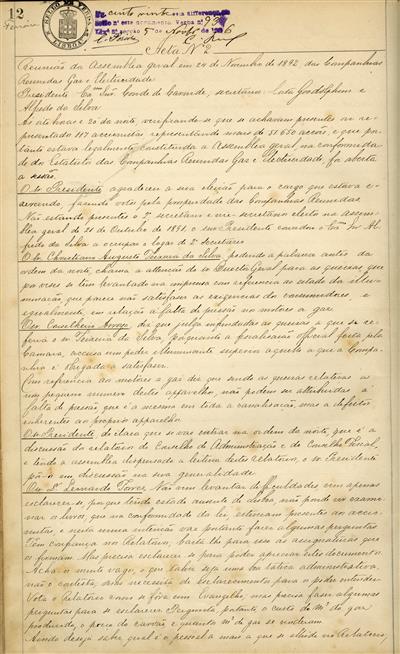 12
SELLO DE VERBA
LISBOA
Acta Nº 2
Reunião da Assemblea geral em 24 de Novembro de 1892 das Companhias
Reunidas Gaz e Electricidade
Presidente Exmo Snr Conde de Carnide, secretarios Costa Goodolphim e
Alfredo da Silva
As oito horas e 20 da noute, verificando-se que se achavam presentes ou re-
presentados 117 accionistas representando mais de 51650 acções, e que por-
tanto estava legalmente constituida a Assemblea geral, na conformida-
de do Estatuto das Companhias Reunidas Gaz e Electricidade, foi aberta
a sessão.
O sr Presidente agradeceu a sua eleição para o cargo que estava e-
xercendo, fazendo votos pela prosperidade das Companhias Reunidas
Não estando presentes o 2º secretario e vice-secretario eleito na assem-
blea geral de 21 de Outubro de 1891, o snr Presidente convidou o Exmo Snr Al-
fredo da Silva a occupar o logar de 2º Secretario
O sr Christiano Augusto Teixeira da Silva, pedindo a palavra antes da
ordem da noute, chama a attenção do sr Director Geral para as queixas que
por vezes se têm levantado na imprensa com referencia ao estado da illu-
minação que parece não satisfazer as exigencias dos consumidores, e
egualmente em relação á falta de pressão nos motores a gaz
O sr Conselheiro Arroyo diz que julga infundadas as queixas a que se re-
feriu o sr Teixeira da Silva, porquanto a fiscalisação official feita pela
Camara, accusa um poder illuminante superior aquelle a que a Compa-
nhia é obrigada a satisfazer.
Com referencia aos motores a gaz diz que sendo as queixas relativas a
um pequeno numero destes apparelhos, não podem ser attribuidas a
falta de pressão que é a mesma em toda a canalisação, mas a defeitos
inherentes ao proprio apparelho
O sr Presidente declara que se vae entrar na ordem da noute, que é a
discussão do relatorio do Conselho de Administração e do Conselho Fiscal,
e tendo a assemblea dispensado a leitura destes relatorios, o sr Presidente
põe-os em discussão na sua generalidade
O sr Dr Fernando Torres Não vem levantar difficuldades vem apenas
esclarecer-se porque tendo estado ausente de Lisboa, não poude ir exami-
nar os livros, que na conformidade da lei estiveram presentes aos accio-
nistas e nessa mesma intenção vae portanto fazer algumas perguntas
Tem confiança no Relatorio, basta-lhe para isso as assignaturas que
os firmam. Mas precisa esclarecer-se para poder apreciar estes documentos.
Acha-o muito vago, o que talvez seja uma boa tatica administrativa,
não o contesta, mas necessita de esclarecimentos para o poder entender
Vota o Relatorio como se fôra um Evangelho, mas precisa fazer algumas
perguntas para se esclarecer. Pergunta, portanto o custo do m³ do gaz
produzido, o preço do carvão e quantos m³ de gaz se venderam
Ainda deseja saber qual é o pessoal a mais a que se allude no Relatorio,